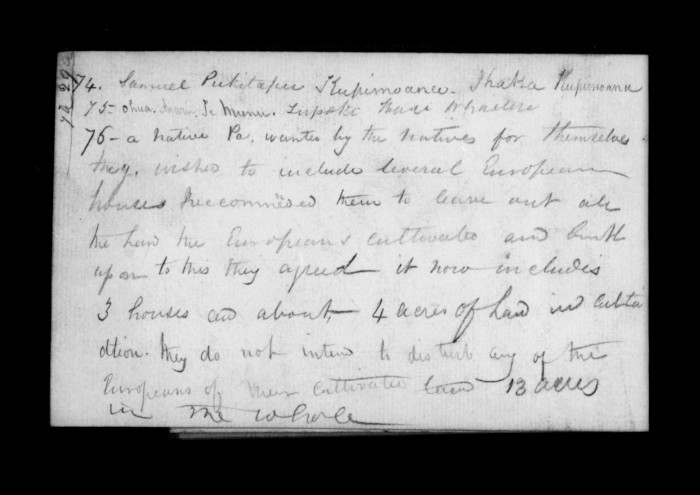 74. Samuel Pukitapu Kupimoana. Ihaka Kupimoana
75 - Te Munu.
76 - a Native Pa, wanted by the Natives for themselves
they wished to include several European
houses I reccommended them to leave out all
the land the Europeans cultivated and built
upon to this they agreed it now includes
3 houses and about 4 acres of land in cultiv
ation. they do not intend to disturb any of the
Europeans of their cultivated land 13 acres
in the whole